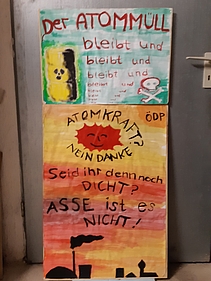 Der ATOMMÜLL
bleibt und
bleibt und
bleibt und
bleibt und
ÖDP
ATOMKRAFT?
NEIN DANKE
Seid ihr denn noch
DICHT?
ASSE ist es
NICHT!